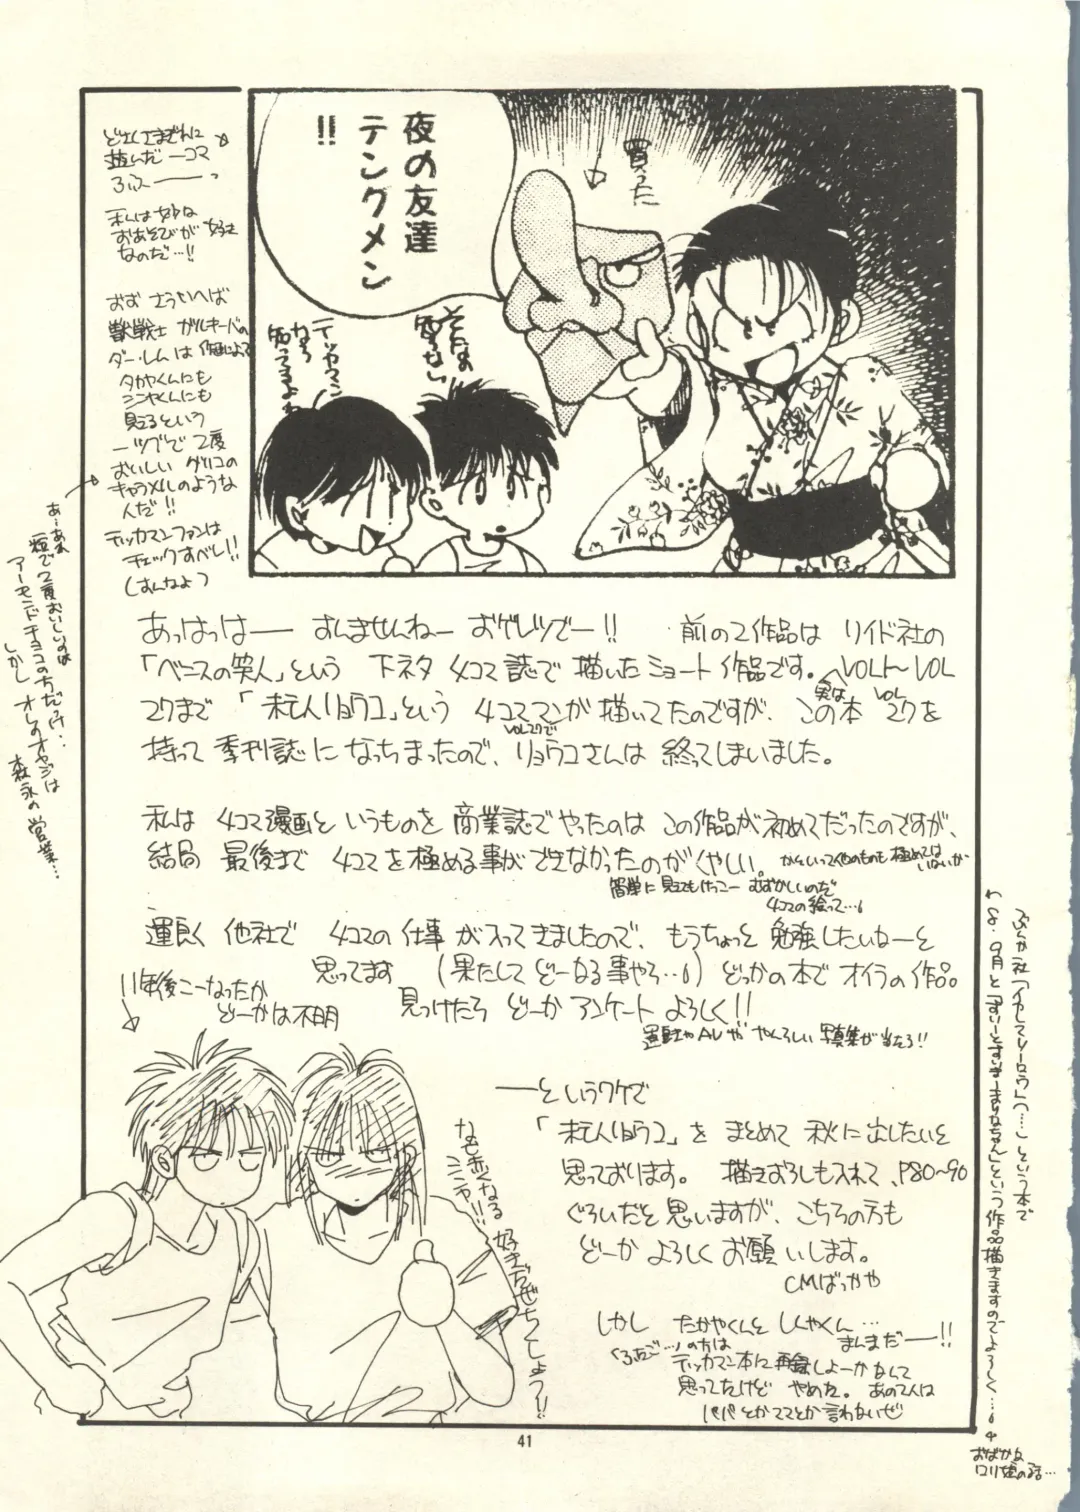 夜の友達
テングメン
!!
買った
そんなの
テッカマン
なら
知ってるよね
どさくさまぎれに
遊んだ一コマ
ろふ――っ
私は妙な
おあそびが好き
なのだ…!!
おおさういへば
獣戦士ガルキーバの
ダー・レムは作画によって
タカヤくんにも
シンヤくんにも
見えるという
一ツブで2度
おいしいグリコの
キャラメルのような
人だ!!
テッカマンファンは
チェックすべし!!
(はんなよっ
あーあれ
一粒で2度おいしいのは
アーモンドチョコの方だっけ…
しかしオレのオヤジは
森永の営業…
あっはっはー すんませんねー おゲレツでー!! 前の2作品はリイド社の
「ベニスの笑人」という 下ネタ 4コマ誌で描いたショート作品です。VOL1〜VOL
27まで「未亡人リョウコ」という 4コママンガ描いてたのですが、実はこの本 VOL27を
持って季刊誌になっちまったので、VOL27でリョウコさんは終ってしまいました。
私は 4コマ漫画というものを商業誌でやったのはこの作品が初めてだったのですが、
結局 最後まで 4コマを極める事ができなかったのがくやしい。かといって他のものも極めてはいないが
簡単に見えてもけっこーむずかしいのだ
4コマの絵って…
運良く 他社で 4コマの仕事が入ってきましたので、もうちょっと勉強したいなーと
思ってます (果たしてどーなる事やら…) どっかの本でオイラの作品
見っけたら どーか アンケート よろしく!!
運動エやAVややらしい写真集が当たる!!
11年後こーなったか
どーかは不明
なも赤くなる
シンヤ!!
好きだぜちくしょう!!
――というワケで
「未亡人リョウコ」を まとめて 秋に出したいと
思っております。描きおろしも入れて、P80〜90
ぐらいだと思いますが、こちらの方も
どーか よろしく お願いします。
CMばっかや
しかし たかやくんと しんやくん…
まんまだ――!!
(ろふご…)の方は
テッカマン本に再録しよーかなんて
思ってたけど やめた。あの2人は
パパとかママとか言わないぜ
ぶんか社「みこすりハーロウ(…)」という本で
8.9月と「すいーとすいまーまりなちゃん」という作品描きますのでよろしく…
おばかな
ロリ娘の話…
41